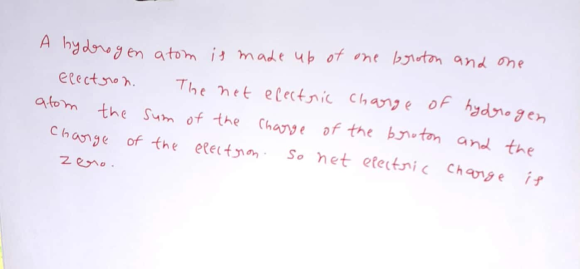 A hydrogen atom is made up of one proton and one
electron. The net electric charge of hydrogen
atom the sum of the charge of the proton and the
charge of the electron. So net electric charge is
zero.